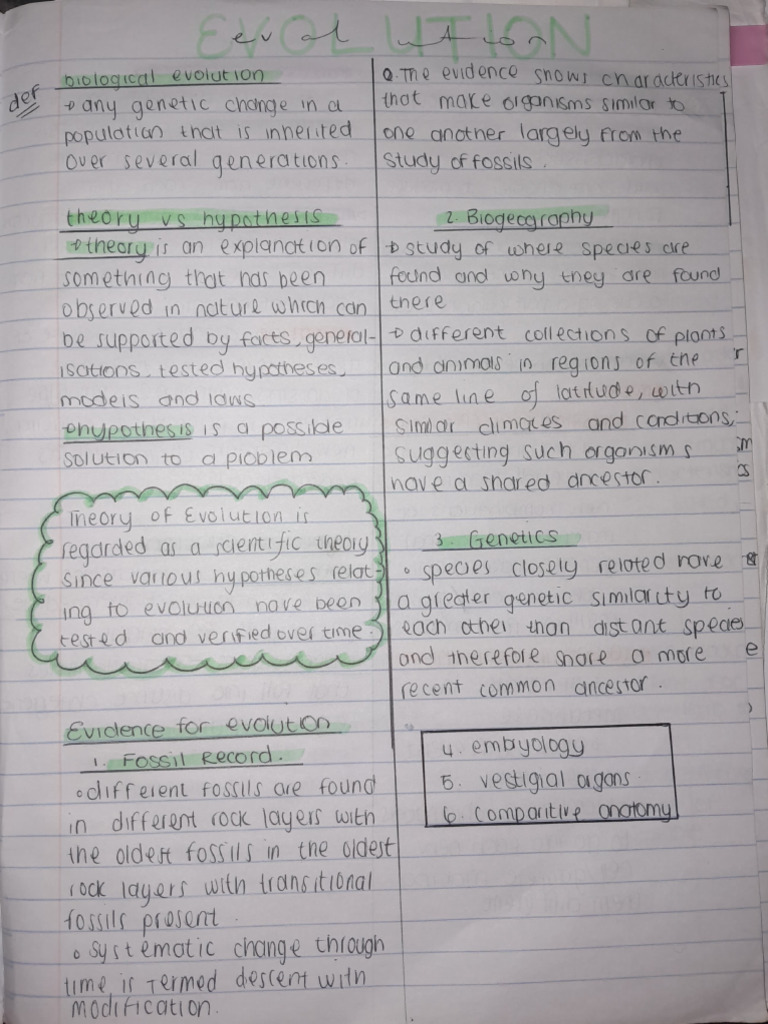 EVOLUTION
def
biological evolution
any genetic change in a
population that is inherited
over several generations.
theory vs hypothesis
theory is an explanation of
something that has been
observed in nature which can
be supported by facts, general-
isations, tested hypotheses,
models and laws
hypothesis is a possible
solution to a problem
Theory of Evolution is
regarded as a scientific theory
since various hypotheses relat-
ing to evolution have been
tested and verified over time.
Evidence for evolution
1. Fossil Record.
different fossils are found
in different rock layers with
the oldest fossils in the oldest
rock layers with transitional
fossils present.
systematic change through
time is termed descent with
modification.
The evidence shows characteristics
that make organisms similar to
one another largely from the
study of fossils.
2. Biogeography
study of where species are
found and why they are found
there
different collections of plants
and animals in regions of the
same line of latitude, with
similar climates and conditions,
suggesting such organisms
have a shared ancestor.
3. Genetics
species closely related have
a greater genetic similarity to
each other than distant species
and therefore share a more
recent common ancestor.
4. embryology
5. vestigial organs
6. comparitive anatomy